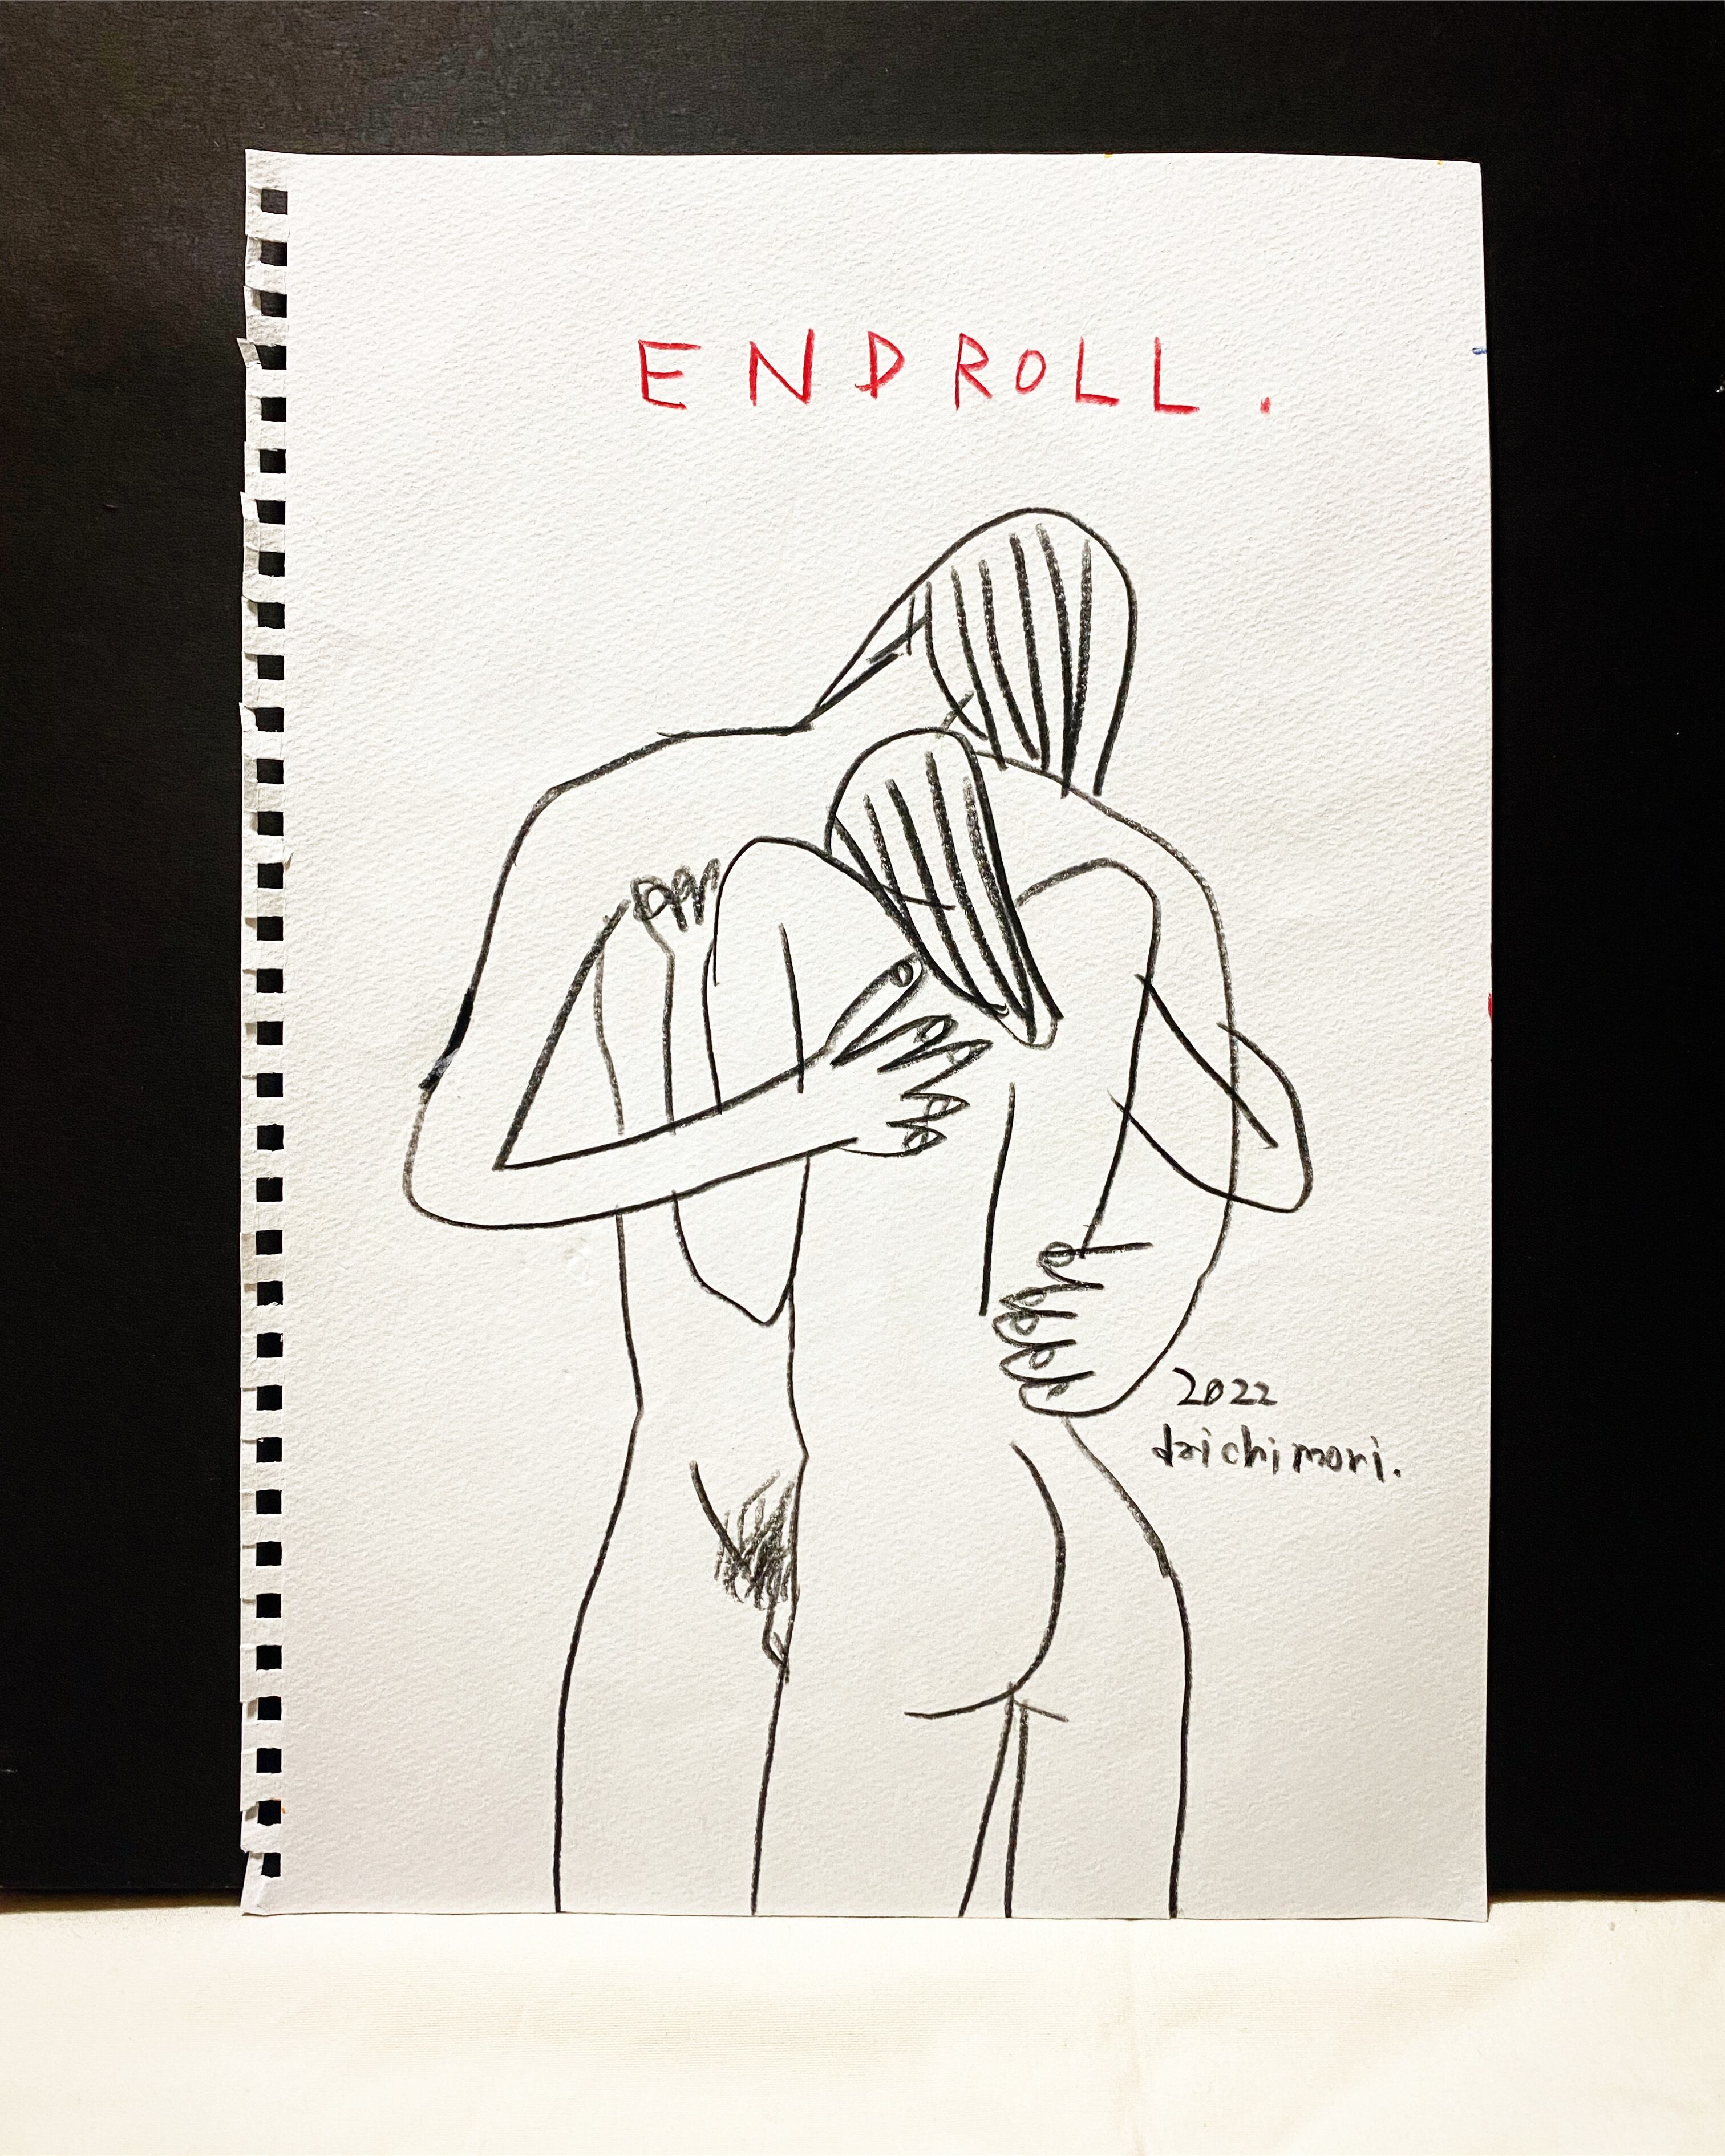 ENDROLL.
2022
daichimori.